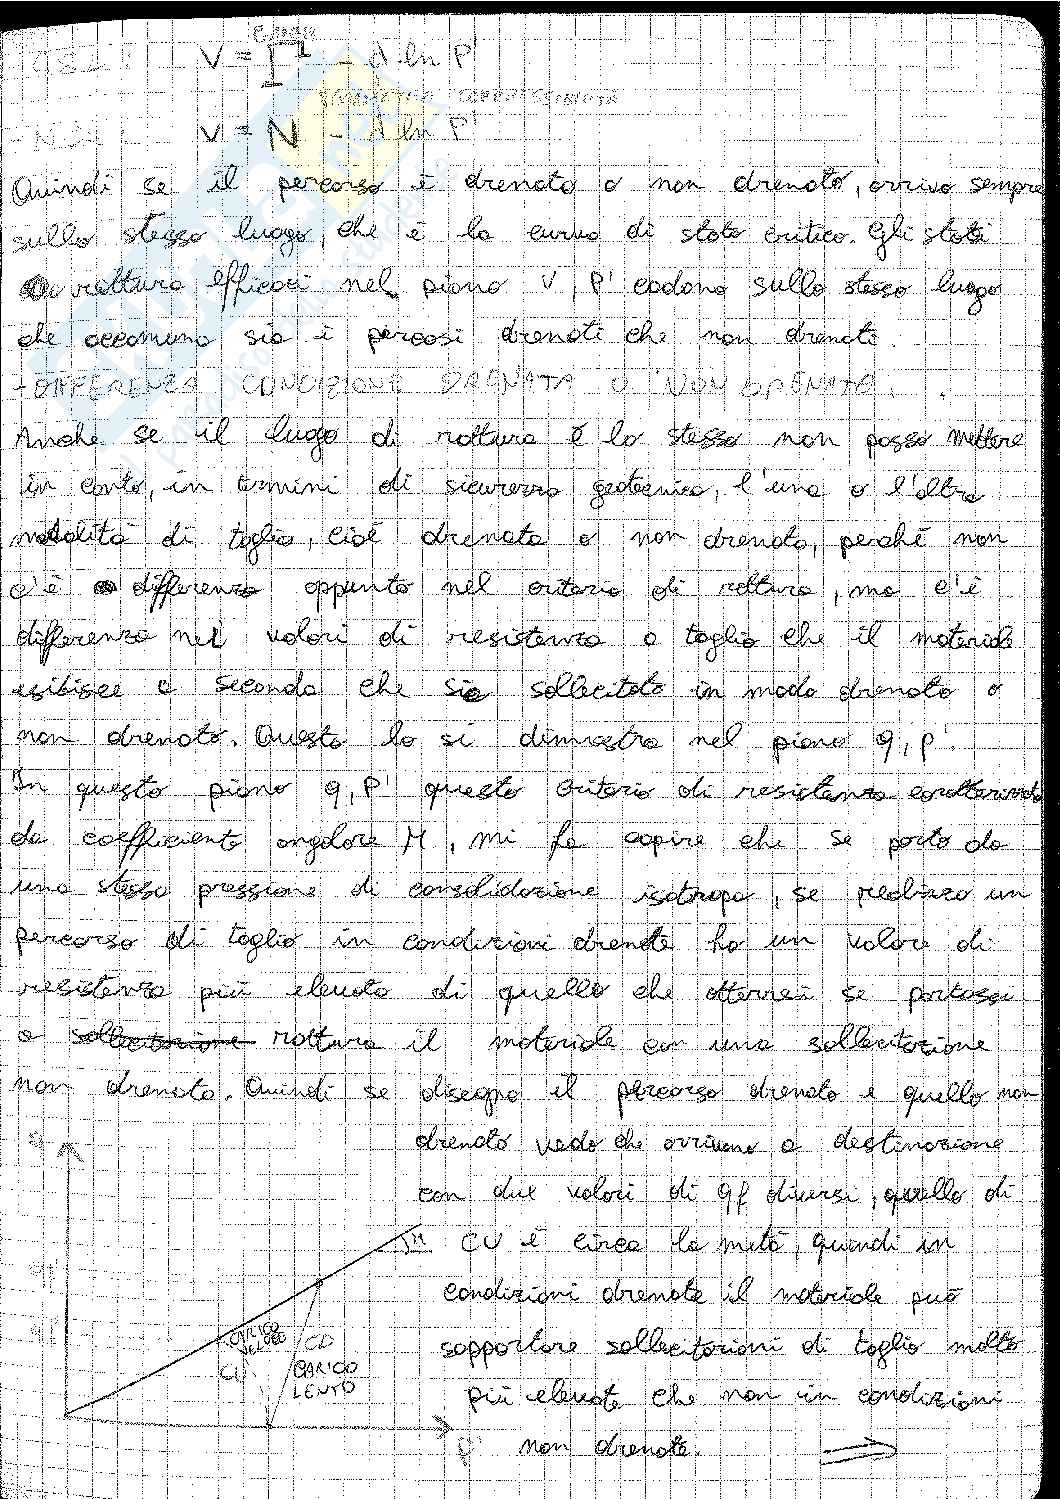 CSL: V = Γ - λ ln P'
V = N - λ ln P'
Quindi se il percorso è drenato o non drenato, arrivo sempre
sullo stesso luogo, che è la curva di stato critico. Gli stati
a rottura efficaci nel piano V, P' cadono sullo stesso luogo
che accomuna sia i percosi drenati che non drenati.
- DIFFERENZA CONDIZIONE DRENATA O NON DRENATA.
Anche se il luogo di rottura è lo stesso non posso mettere
in conto, in termini di sicurezza geotecnica, l'una o l'altra
modalità di taglio, cioè drenata o non drenata, perché non
c'è differenza appunto nel criterio di rottura, ma c'è
differenza nei valori di resistenza a taglio che il materiale
esibisce a seconda che sia sollecitato in modo drenato o
non drenato. Questo lo si dimostra nel piano q, p'.
In questo piano q, P' questo criterio di resistenza caratterizzato
da coefficiente angolare M, mi fa capire che se parto da
una stessa pressione di consolidazione isotropa, se realizzo un
percorso di taglio in condizioni drenate ho un valore di
resistenza più elevato di quello che otterrei se portassi
a sollecitazione rottura il materiale con una sollecitazione
non drenata. Quindi se disegno il percorso drenato e quello non
drenato vedo che arrivano a destinazione
con due valori di qf diversi, quello di
CU è circa la metà, quindi in
condizioni drenate il materiale può
sopportare sollecitazioni di taglio molto
più elevate che non in condizioni
non drenate.
q
M
CARICO
VELOCE
CU
CD
CARICO
LENTO
P'